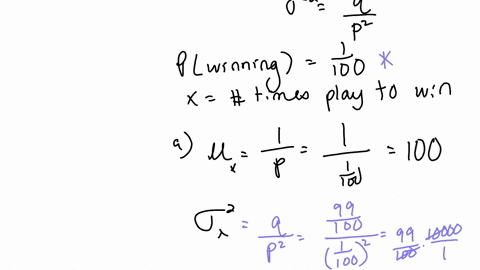 σ² = q/p²
P(winning) = 1/100 *
x = # times play to win
a) μₓ = 1/p = 1/(1/100) = 100
σₓ² = q/p² = (99/100)/(1/100)² = 99/100 · 10000/1